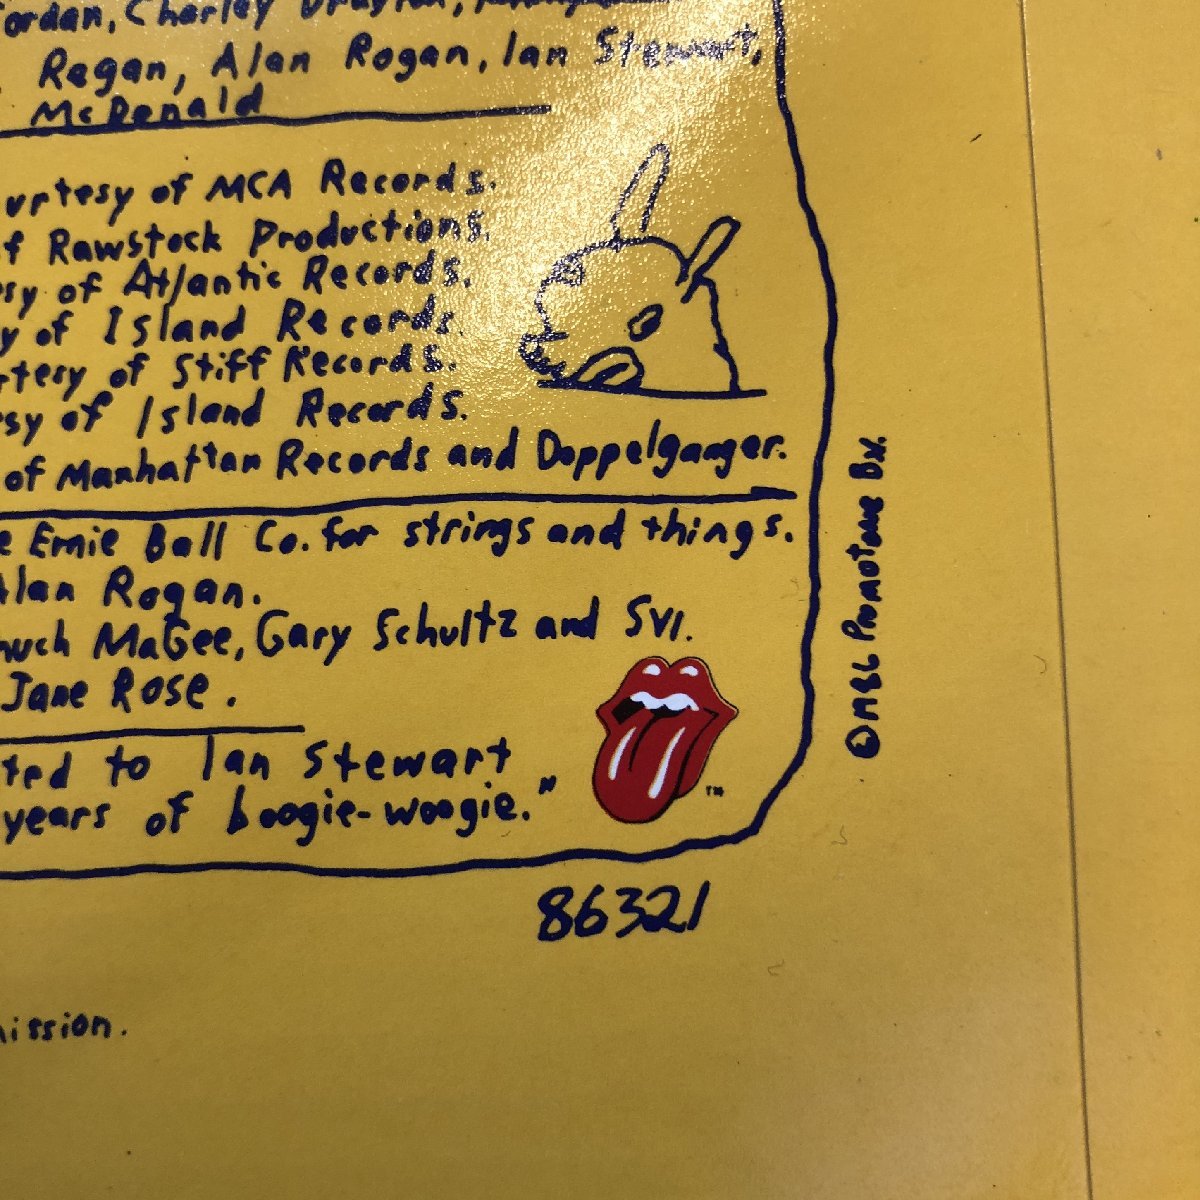 ordan, Charley Drayton,
Regan, Alan Rogan, Ian Stewart,
McDonald
urtesy of MCA Records.
f Rawstock Productions.
sy of Atlantic Records.
y of Island Records.
rtesy of Stiff Records.
sy of Island Records.
of Manhattan Records and Doppelganger.
e Ernie Ball Co. for strings and things.
Alan Rogan.
huck MaGee, Gary Schultz and SVI.
Jane Rose.
ted to Ian Stewart
years of boogie-woogie."
TM
86321
mission.
Promotone BV.